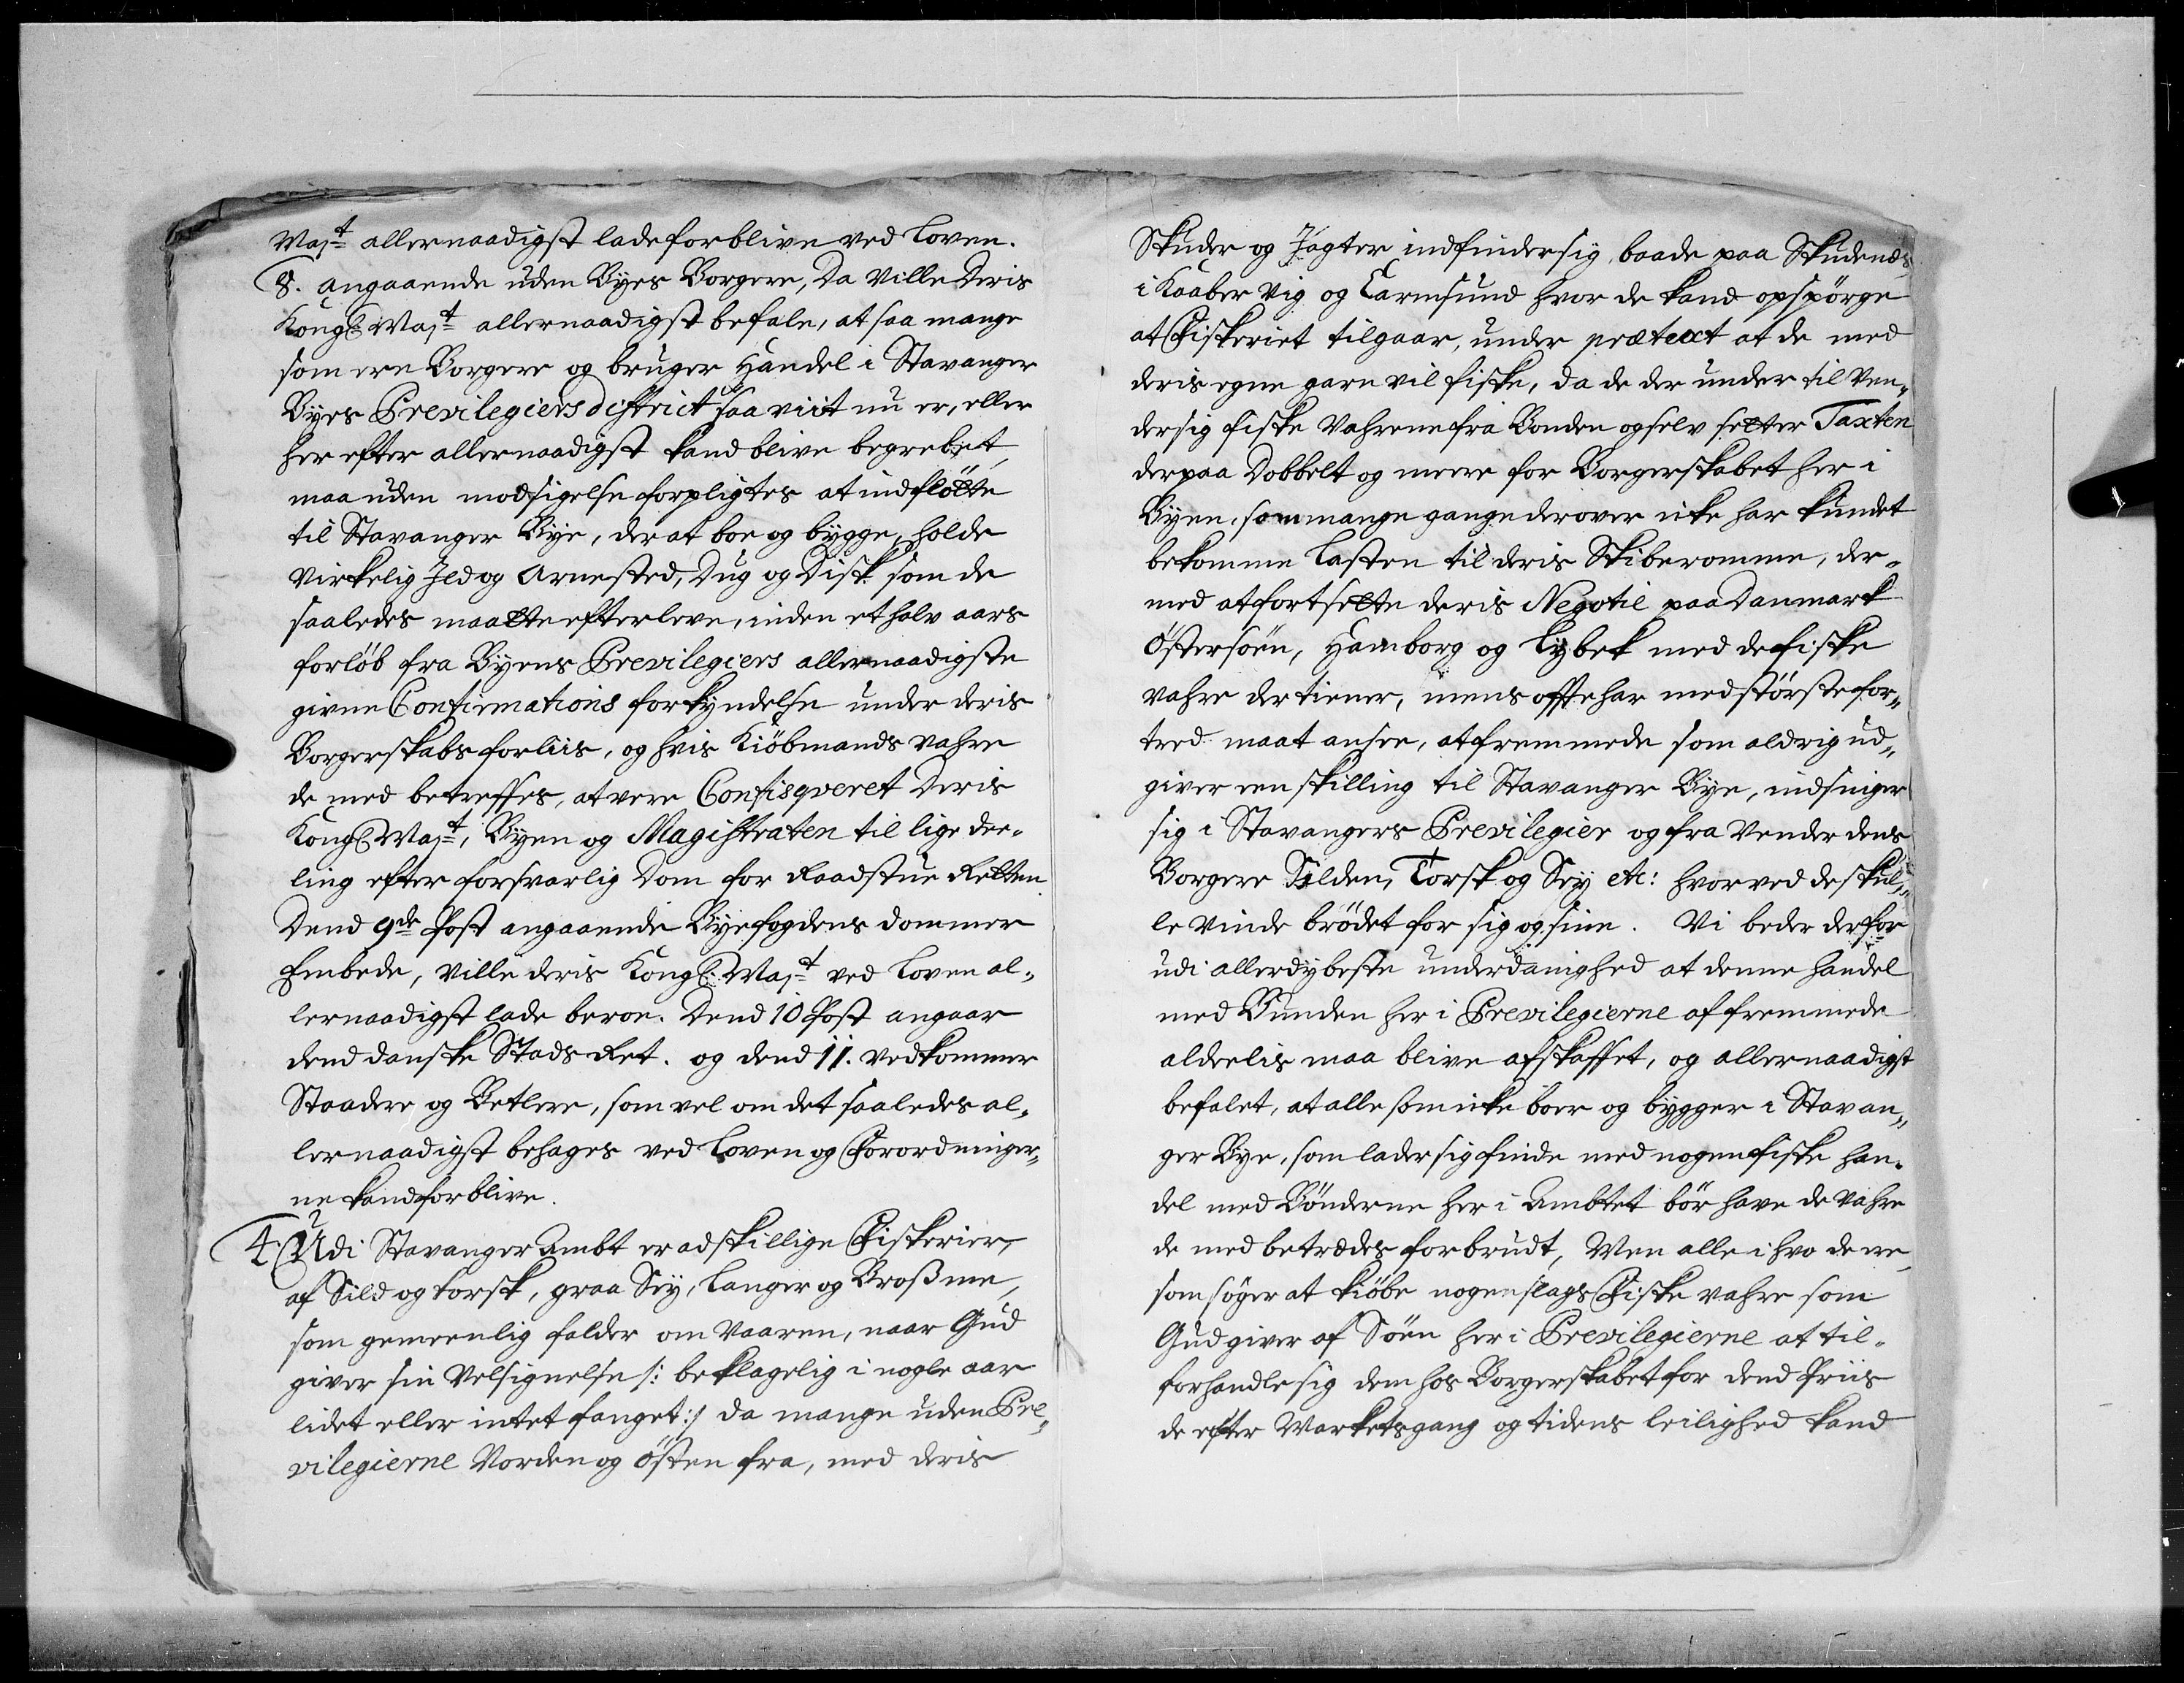 Majt allernaadigst lade forblive ved Loven.
8. angaaende uden Byes Borgere, Da Ville Deris
Kongl: Majt allernaadigst befale, at saa mange
som ere Borgere og bruger Handel i Stavanger
Byes Previlegiers district saa viit nu er, eller
her efter allernaadigst kand blive begrebet,
maa uden modsigelse forpligtes at indflötte
til Stavanger Bye, der at boe og bygge, holde
Virkelig Ild og Arnested, Dug og Disk som de
saaledes maatte efterleve, inden et halv aars
forlöb fra Byens Previlegiers allernaadigste
givne Confirmations forkyndelse under deris
Borgerskabs forliis, og hvis Kiöbmands vahre
de med betreffes, at vere Confisqveret Deris
Kongl Majt, Byen og Magistraten til lige dee-
ling efter forsvarlig Dom for Raadstue Retten
Dend 9de Post angaaende Byefogdens dommer
Embede, Ville deris Kongl: Majt ved Loven al-
lernaadigst lade beroe. Dend 10 Post angaar
dend danske Stads Ret. og dend 11. vedkommer
Staadere og Betlere, som vel om det saaledes al-
lernaadigst behages ved Loven og Forordninger-
ne kand forblive.
4. 2 Udi Stavanger Ambt er adskillige Fiskerier,
af Sild og torsk, graa Sey, Langer og Brosme,
som gemeenlig falder om Vaaren, naar Gud
giver sin Velsignelse /: beklagelig i nogle aar
lidet eller intet fanget :/ da mange uden Pre-
vilegierne Norden og östen fra, med deris
Skuder og Jagter indfinder sig, baade paa Skudenes
i Kaaber Vig og Carmsund hvor de kand opspörge
at Fiskeriet tilgaar, under prætext at de med
deris egne garn vil fiske, da de der under til ven-
der sig fiske Vahrene fra Bonden og selv setter Taxten
der paa Dobbelt og meere for Borgerskabet her i
Byen, som mange gange derover icke har kundet
bekomme Lasten til deris Skiberomme, der-
med at fortsette deris Negotie paa Danmark
Östersöen, Hamborg og Lybek med de fiske
vahre der tiener, mens offte har med störste for-
tred maat ansee, at fremmede som aldrig ud-
giver een skilling til Stavanger Bye, indsniger
sig i Stavangers Previlegier og fra Vender dens
Borgere Silden, Torsk og Sey etc: hvorved de skul-
le Vinde brödet for sig og sine. Vi beder derfor
udi allerdybeste underdanighed at denne handel
med Bunden her i Previlegierne af fremmede
aldeelis maa blive afskaffet, og allernaadigst
befalet, at alle som icke boer og bygger i Stavan-
ger Bye, som lader sig finde med nogen fiske han-
del med Bönderne her i Ambtet bör have de Vahre
de med betrædes forbrudt, Men alle i hvo de ere,
som söger at kiöbe nogen slags Fiske vahre som
Gud giver af Söen her i Previlegierne at til-
forhandle sig dem hos Borgerskabet for dend Priis
de efter Markets gang og tidens leilighed kand